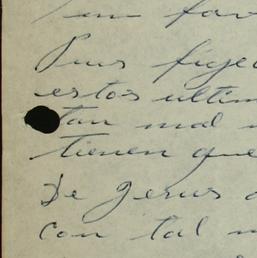 un fav
Pues fijec
estos ultim
tan mal
tienen que
De Jesus
con tal